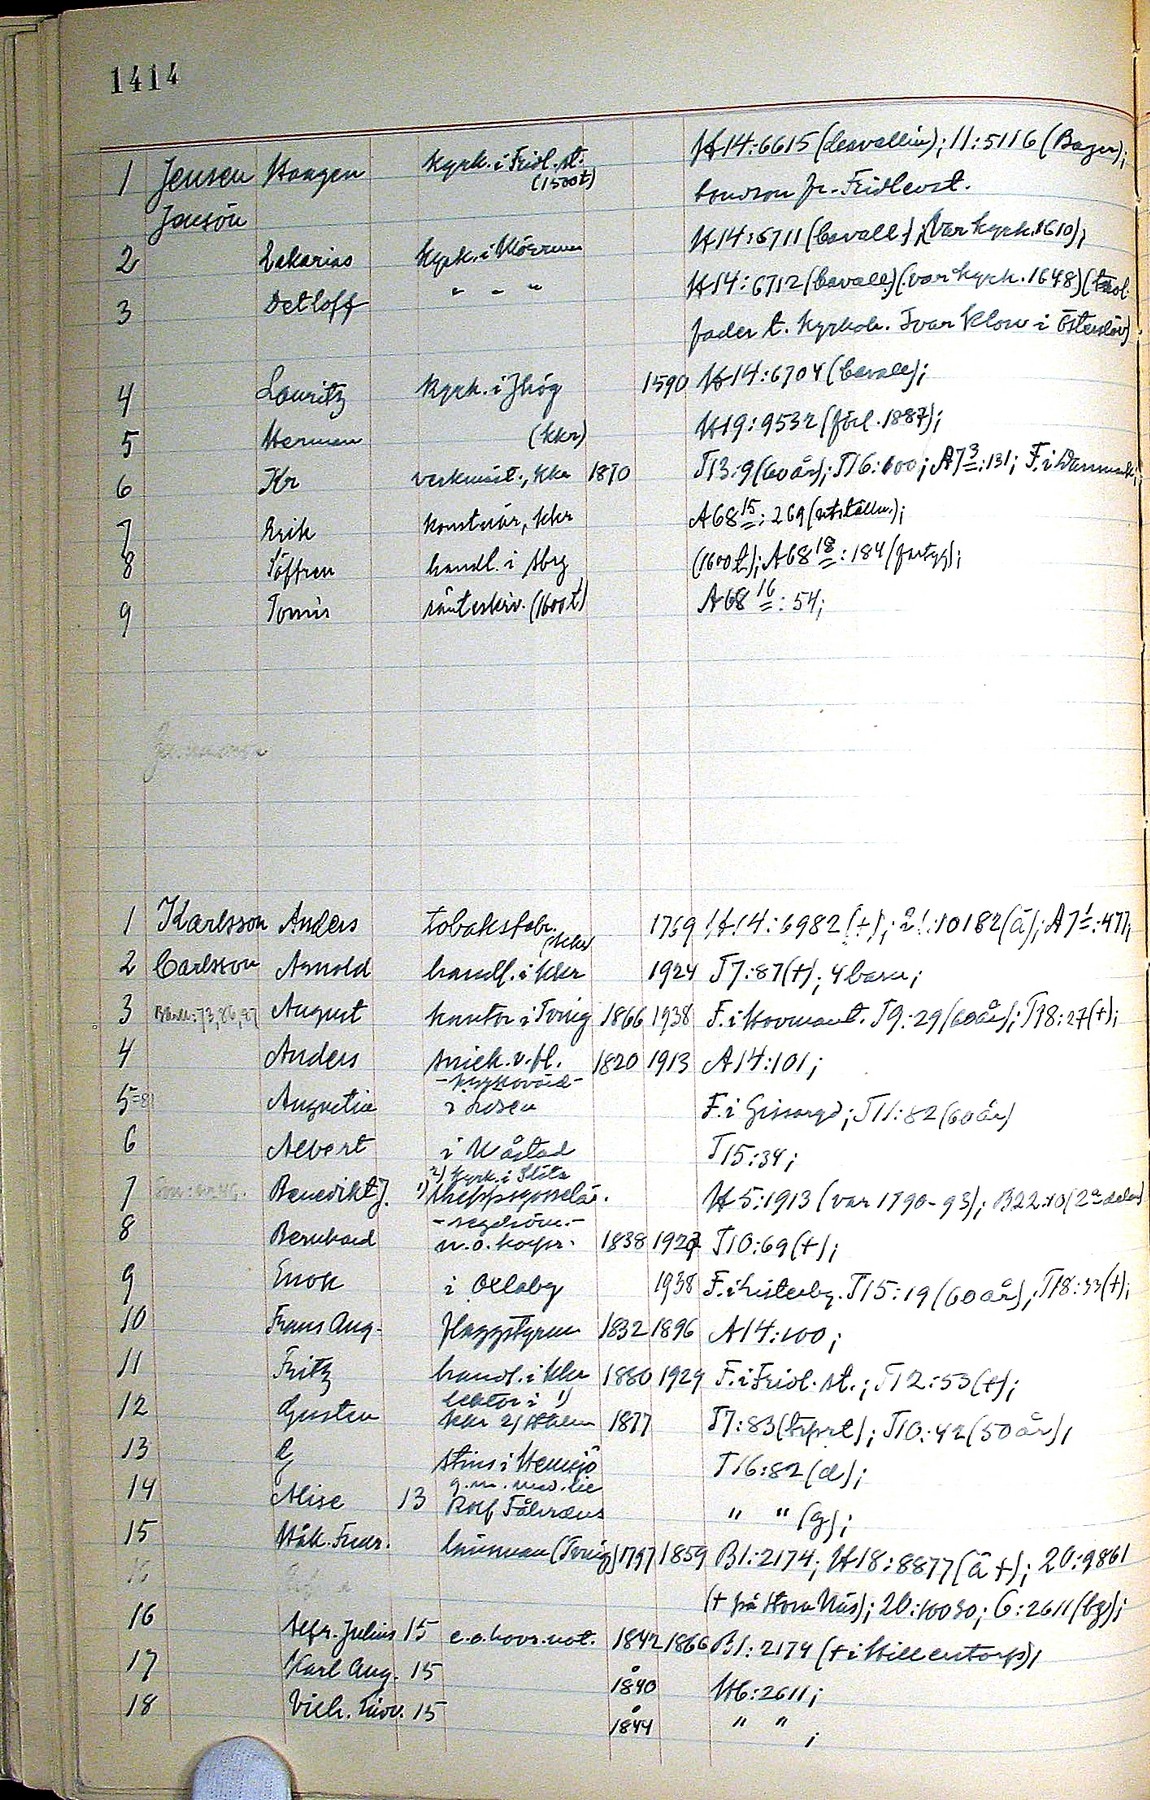 1414
1 Jensen Haagen Kyrk. i Fridl.st. (1500t) H14:6615 (Cavallin); 11:5116 (Bager);
Jensön bondson fr. Fridlevst.
2 Zakarias Kyrk. i Mörrum H14:6711 (Cavall.); (var kyrk. 1610);
3 Detloff " - " H14:6712 (Cavall.) (var kyrk. 1648)
fader t. kyrkoh. Ivar Klow i Österslöv)
4 Lauritz Kyrk. i Jhög 1590 H14:6704 (Cavall);
5 Herman (kkr) H19:9532 (förl. 1887);
6 Kr verkmäst., kkr 1870 T13:9 (60 år); T16:100; A7 3:131; F. i Danmark;
7 Erik konstnär, kkr A68 15:269 (utställn.);
8 Söffren handl. i Abg (1600t); A68 18:184 (fartyg);
9 Tomis ränteskriv. (1600t) A68 16:54;
1 Karlsson Anders tobaksfabr. kkr 1769 H14:6982 (+); 21:10182 (å); A7 1:471;
2 Carlsson Arnold handl. i kkr 1924 T7:87 (+); 4 barn;
3 August kantor i Tving 1866 1938 F. i Hovmant. T9:29 (60 år); T18:27 (+);
4 Anders snick. v. fl. 1820 1913 A14:101;
5=81 Augustin -kyrkovärd- i Lösen F. i Gissaryd; T11:82 (60 år)
6 Albert i Måstad T15:34;
7 Benedikt J. 1) skeppsgosselär. 2) Kyrk. i Slite H5:1913 (var 1790-93); B22:10 (2a delen)
8 Bernhard -segelsöm.- u.o. korpr. 1838 1927 T10:69 (+);
9 Enok i Allaby 1938 F. i Listerby. T15:19 (60 år); T18:33 (+);
10 Frans Aug. flaggstyrm 1832 1896 A14:100;
11 Fritz handl. i kkr 1880 1929 F. i Fridl.st.; T12:53 (+);
12 Gusten lektor i 1) kkr 2) Sthlm 1877 T7:83 (tryst); T10:42 (50 år);
13 G stins i Hemsjö T16:82 (d);
14 Alise 13 g.m. med.lic Rolf Fåhræus " " (g);
15 Håk. Fredr. länsman (Tving) 1797 1859 B1:2174; H18:8877 (å +); 20:9861
(+ på Stora Näs); 20:10030; 6:2611 (bg);
16 Alfr. Julius 15 e.o. hovr.not. 1842 1866 B1:2174 (+ i Hillentorp);
17 Karl Aug. 15 1840 H6:2611;
18 Vilh. Teod. 15 1844 " " ;